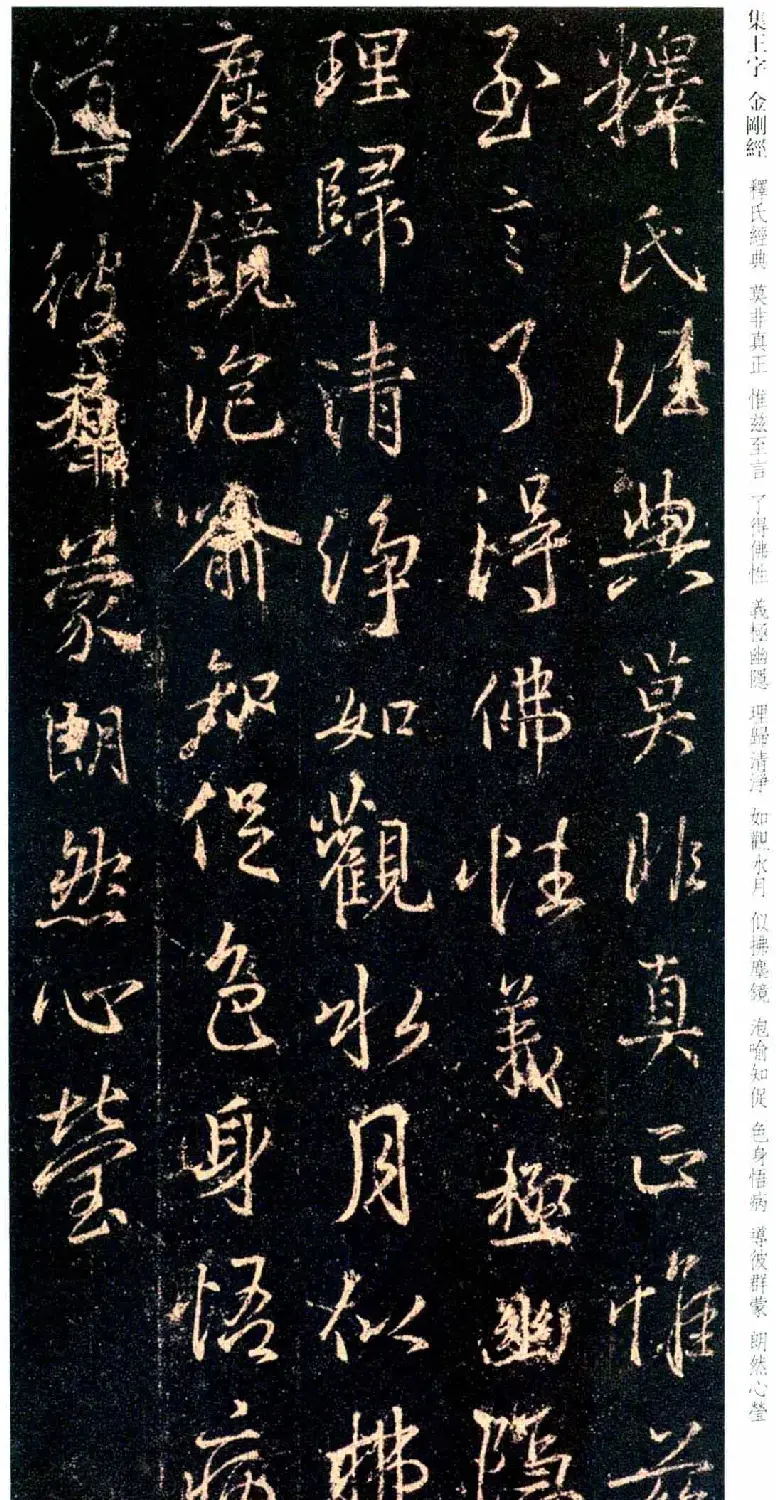 集王字 金剛經 釋氏經典 莫非真正 惟茲至言 了得佛性 義極幽隱 理歸清淨 如觀水月 似拂塵鏡 泡喻知促 色身悟病 導彼群蒙 朗然心瑩
釋氏經典莫非真正惟茲
至言了得佛性義極幽隱
理歸清淨如觀水月似拂
塵鏡泡喻知促色身悟病
導彼群蒙朗然心瑩